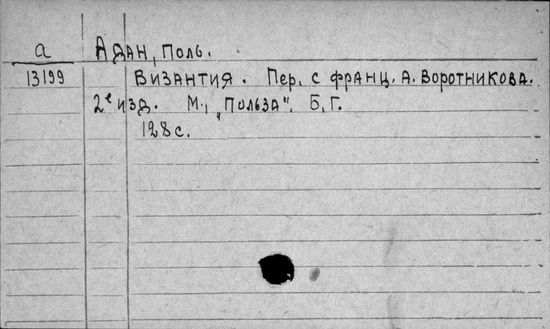 а
13199
Адан, Поль.
Византия. Пер. с франц. А. Воротникова.
2е изд. М., "Польза". Б.Г.
128 с.